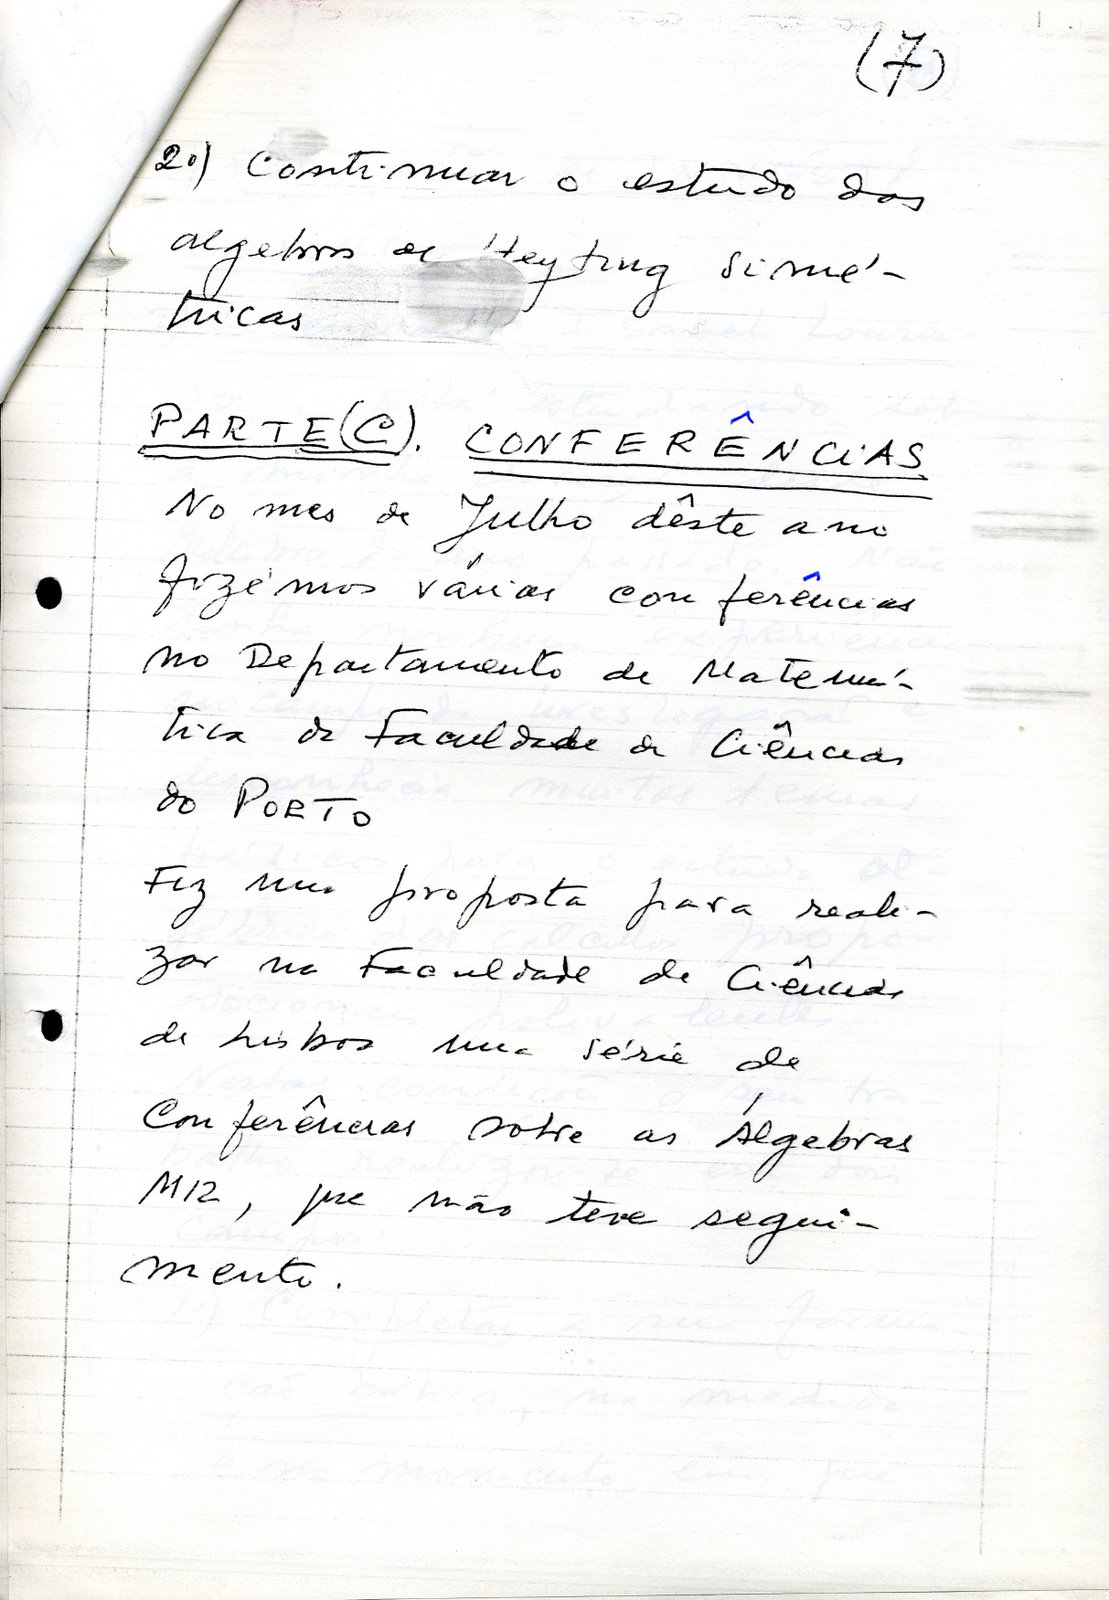 (7)
2º) Continuar o estudo das
algebras de Heyting simé-
tricas
PARTE (C). CONFERÊNCIAS
No mes de Julho dêste ano
fizémos várias conferências
no Departamento de Matemá-
tica da Faculdade de Ciências
do PORTO
Fiz uma proposta para reali-
zar na Faculdade de Ciências
de Lisboa uma série de
Conferências sobre as Álgebras
M12, que não teve segui-
mento.